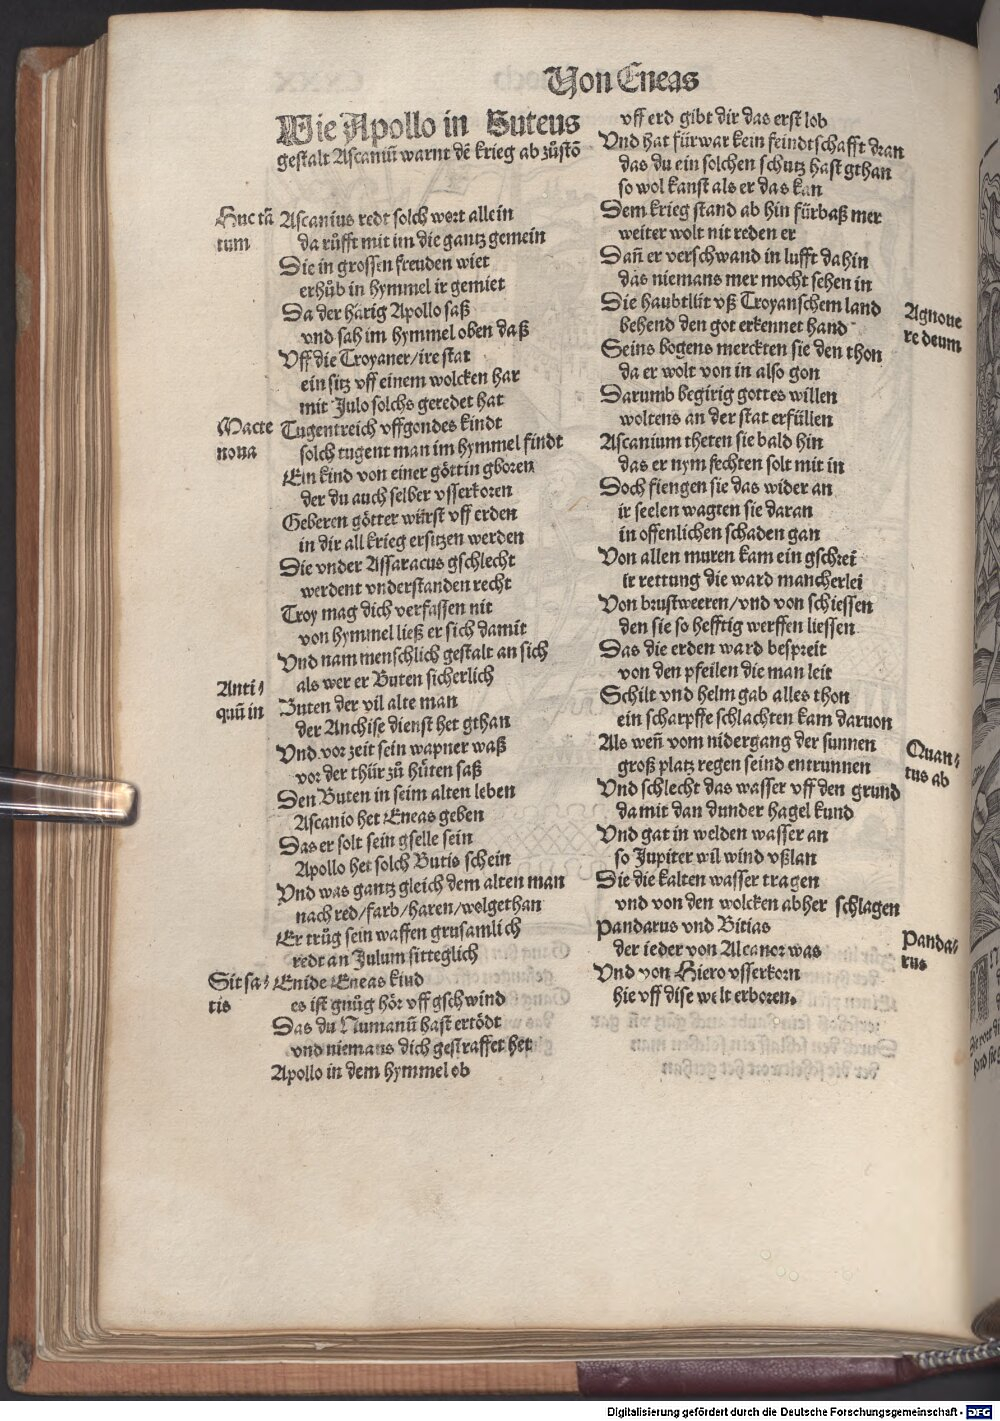 Von Eneas
Wie Apollo in Buteus
gestalt Ascaniū warnt dē krieg ab zůstō
Huc tā
tum
Ascanius redt solch wort allein
da růfft mit im die gantz gemein
Die in grossen freuden wiet
erhůb in hymmel ir gemiet
Da der härig Apollo saß
vnd sah im hymmel oben daß
Vff die Troyaner/ ire stat
ein sitz vff einem wolcken har
mit Julo solchs geredet hat
Macte
noua
Tugentreich vffgondes kindt
solch tugent man im hymmel findt
Ein kind von einer göttin gboren
der du auch selber vsserkoren
Geberen götter würst vff erden
in dir all krieg ersitzen werden
Die vnder Assaracus gschlecht
werdent vnderstanden recht
Troy mag dich verfassen nit
von hymmel ließ er sich damit
Vnd nam menschlich gestalt an sich
als wer er Buten sicherlich
Anti⸗
quū in
Buten der vil alte man
der Anchise dienst het gthan
Vnd vor zeit sein wapner waß
vor der thür zů hüten saß
Den Buten in seim alten leben
Ascanio het Eneas geben
Das er solt sein gselle sein
Apollo het solch Butis schein
Vnd was gantz gleich dem alten man
nach red/ farb/ haren/ wolgethan
Er trůg sein waffen grusamlich
redt an Julum sitteglich
Sit sa⸗
tis
Enide Eneas kind
es ist gnůg hör vff gschwind
Das du Numanū hast ertödt
vnd niemans dich gestraffet het
Apollo in dem hymmel ob
vff erd gibt dir das erst lob
Vnd hat fürwar kein feindtschafft dran
das du ein solchen schutz hast gthan
so wol kanst als er das kan
Dem krieg stand ab hin fürbaß mer
weiter wolt nit reden er
Dañ er verschwand in lufft dahin
das niemans mer mocht sehen in
Agnoue
re deum
Die haubtlüt vß Troyanschem land
behend den got erkennet hand
Seins bogens merckten sie den thon
da er wolt von in also gon
Darumb begirig gottes willen
woltens an der stat erfüllen
Ascanium theten sie bald hin
das er nym fechten solt mit in
Doch fiengen sie das wider an
ir seelen wagten sie daran
in offenlichen schaden gan
Von allen muren kam ein gschrei
ir rettung die ward mancherlei
Von brustweeren/ vnd von schiessen
den sie so hefftig werffen liessen
Das die erden ward bespreit
von den pfeilen die man leit
Schilt vnd helm gab alles thon
ein scharpffe schlachten kam daruon
Quan⸗
tus ab
Als weñ vom nidergang der sunnen
groß platz regen seind entrunnen
Vnd schlecht das wasser vff den grund
damit dan dunder hagel kund
Vnd gat in welden wasser an
so Jupiter wil wind vßlan
Die die kalten wasser tragen
vnd von den wolcken abher schlagen
Panda⸗
rus
Pandarus vnd Bitias
der ieder von Alcanor was
Vnd von Hiero vsserkorn
hie vff dise welt erboren.
Digitalisierung gefördert durch die Deutsche Forschungsgemeinschaft - DFG